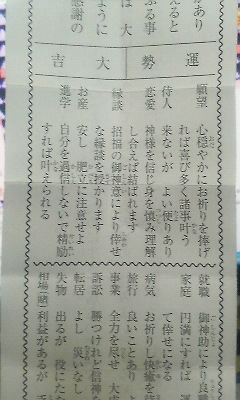 があり
えると
ぶる事
は 大
ように
感謝の
運勢
大吉
願望 心穏やかにお祈りを捧げ
れば喜び多く諸事叶う
待人 来ないが よい便りあり
恋愛 神様を信じ身を慎み理解
し合えば結ばれます
縁談 招福の御神意により倖せ
な縁談を授かります
お産 安し 肥立に注意せよ
進学 自分を過信しないで精励
すれば叶えられる
就職 御神助により良職
家庭 円満にすれば 運
て倖せになる
病気 お祈りし快癒を待
旅行 良いことあり
事業 全力を尽せ 大
訴訟 勝つけれど信
転居 よし 災いなし
失物 出るが 役にた
相場 利益があるが